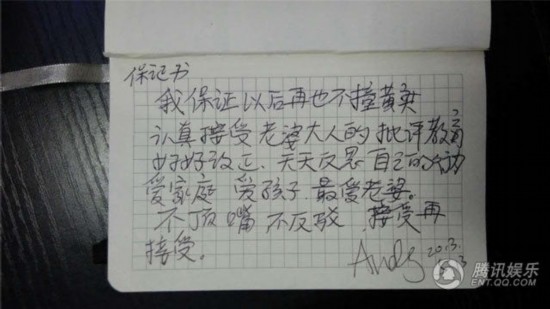 保证书
我保证以后再也不撞黄奕
认真接受老婆大人的批评教育
好好改正、天天反思自己的
爱家庭 爱孩子 最爱老婆。
不顶嘴 不反驳 接受再
接受。
Andy 2013.
腾讯娱乐
ENT.QQ.COM